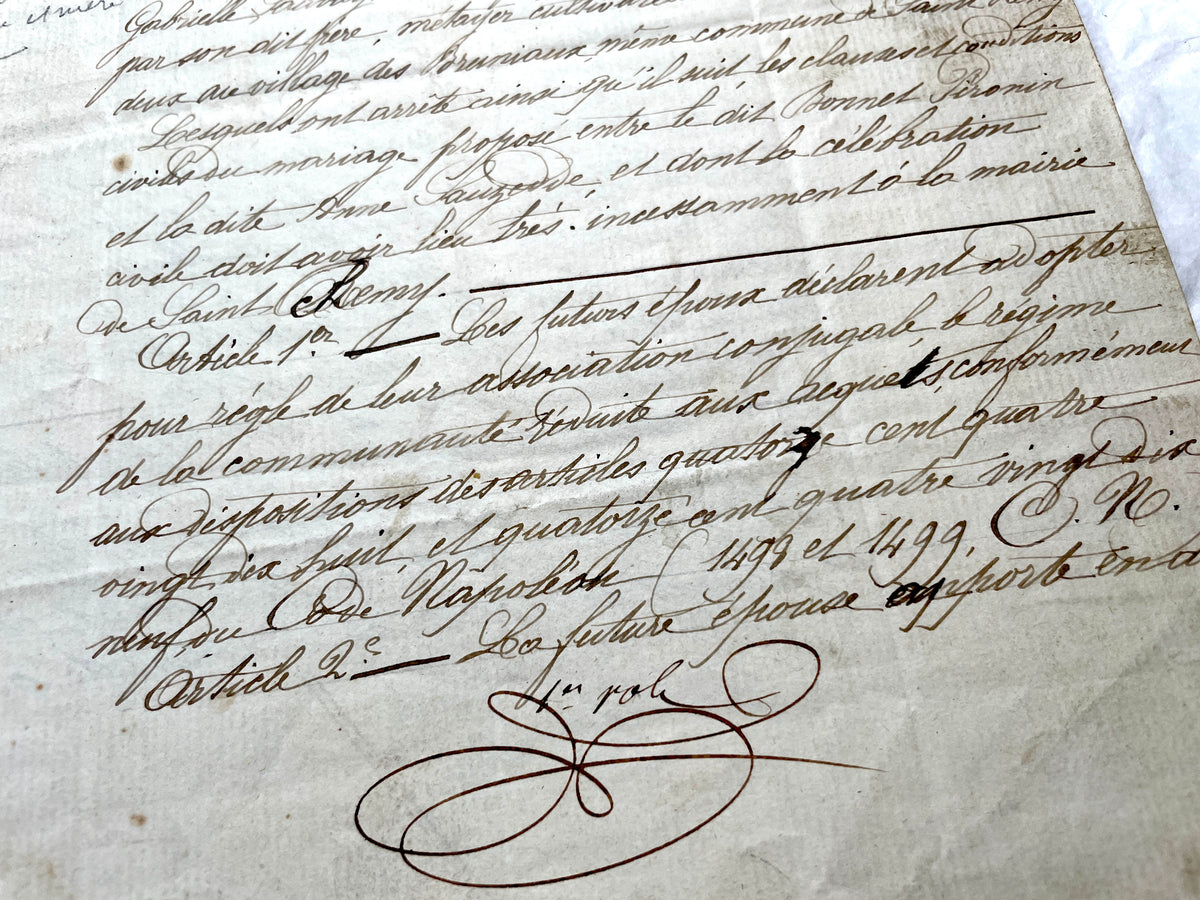 Gabrielle
par son dit frère, métayer cultivateur
deux au village des Bruniaux, même commune de Saint Remy
Lesquels ont arrêté ainsi qu'il suit les clauses et conditions
civiles du mariage proposé entre le dit Bonnet Pironin
et la dite Anne Sauzedde, et dont la célébration
civile doit avoir lieu très incessamment à la mairie
de Saint Remy.
Article 1.er Les futurs époux déclarent adopter
pour régle de leur association conjugale, le régime
de la communauté réduite aux acquets, conformément
aux dispositions des articles quatorze cent quatre
vingt dix huit, et quatorze cent quatre vingt dix
neuf du Code Napoléon (1498 et 1499, C. N.
Article 2.e La future épouse apporte en
1er role